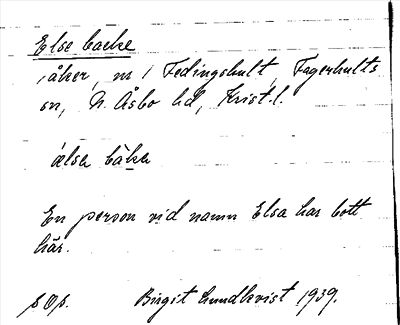 Else backe
åker, nr 1 Fedingshult, Fagerhults
sn, N. Åsbo hd, Krist.l.
älsa bàka
En person vid namn Elsa har bott
här.
s Op. Birgit Lundkvist 1939.